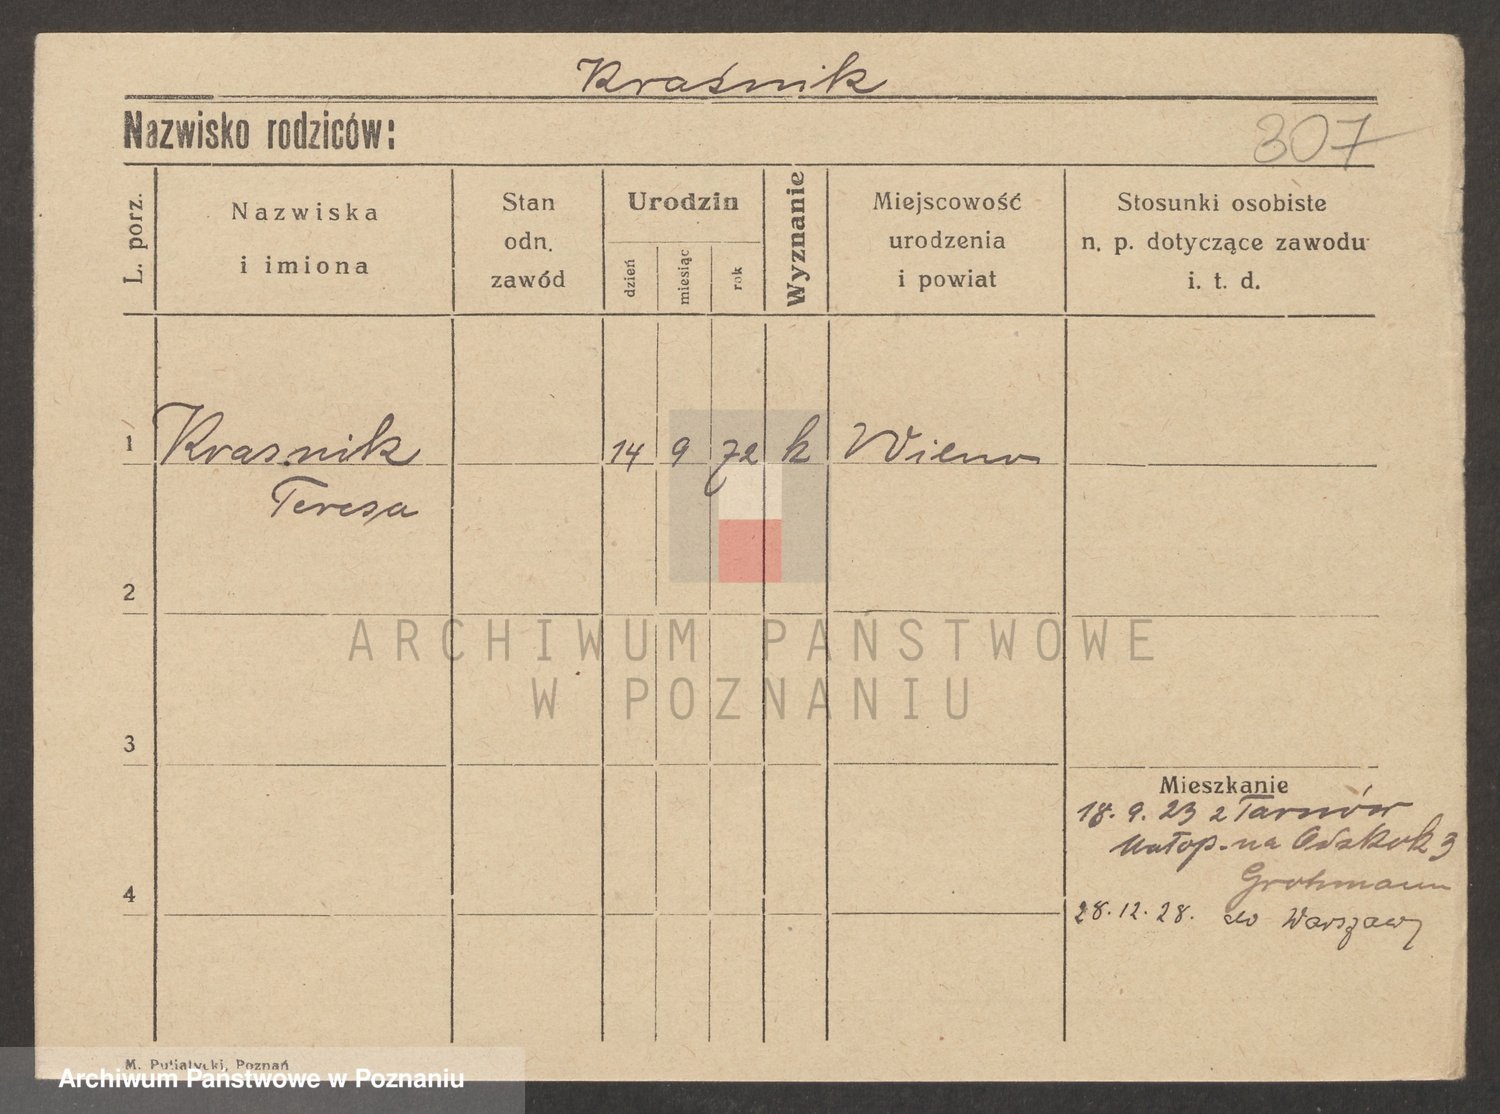 Kraśnik
Nazwisko rodziców:
307
L. porz.
Nazwiska
i imiona
Stan
odn.
zawód
Urodzin
dzień
miesiąc
rok
Wyznanie
Miejscowość
urodzenia
i powiat
Stosunki osobiste
n. p. dotyczące zawodu
i. t. d.
1 Krasnik 14 9 72 k
Teresa
2
ARCHIWUM PAŃSTWOWE
W POZNANIU
3
Mieszkanie
18. 9. 23 z Tarnów
Małop. na 3
Grohmann
4
28. 12. 28. do Warszawy
M. Putiatycki, Poznań
Archiwum Państwowe w Poznaniu